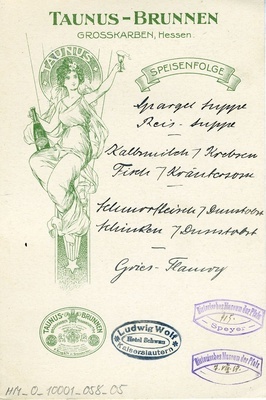 TAUNUS-BRUNNEN
GROSSKARBEN, Hessen.
TAUNUS
SPEISENFOLGE
Spargel suppe
Reis-suppe
Kalbsmilch / Krebsen
Fisch / Kräutersose
Schmorfleisch / Dunstobst
Schinken / Dunstobst
Gries-Flamry
TAUNUS-BRUNNEN
Ludwig Wolf
Hotel Schwan
Kaiserslautern
Historisches Museum der Pfalz
Speyer
Historisches Museum der Pfalz
HM_0_10001_058_05